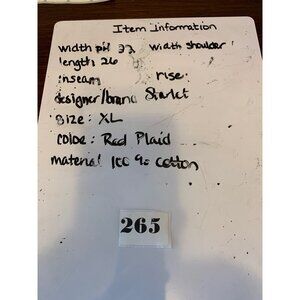 Item Information
width pit 22 width shoulder
length 26
inseam rise
designer/brand Starlet
size: XL
color: Red Plaid
material 100% cotton
265